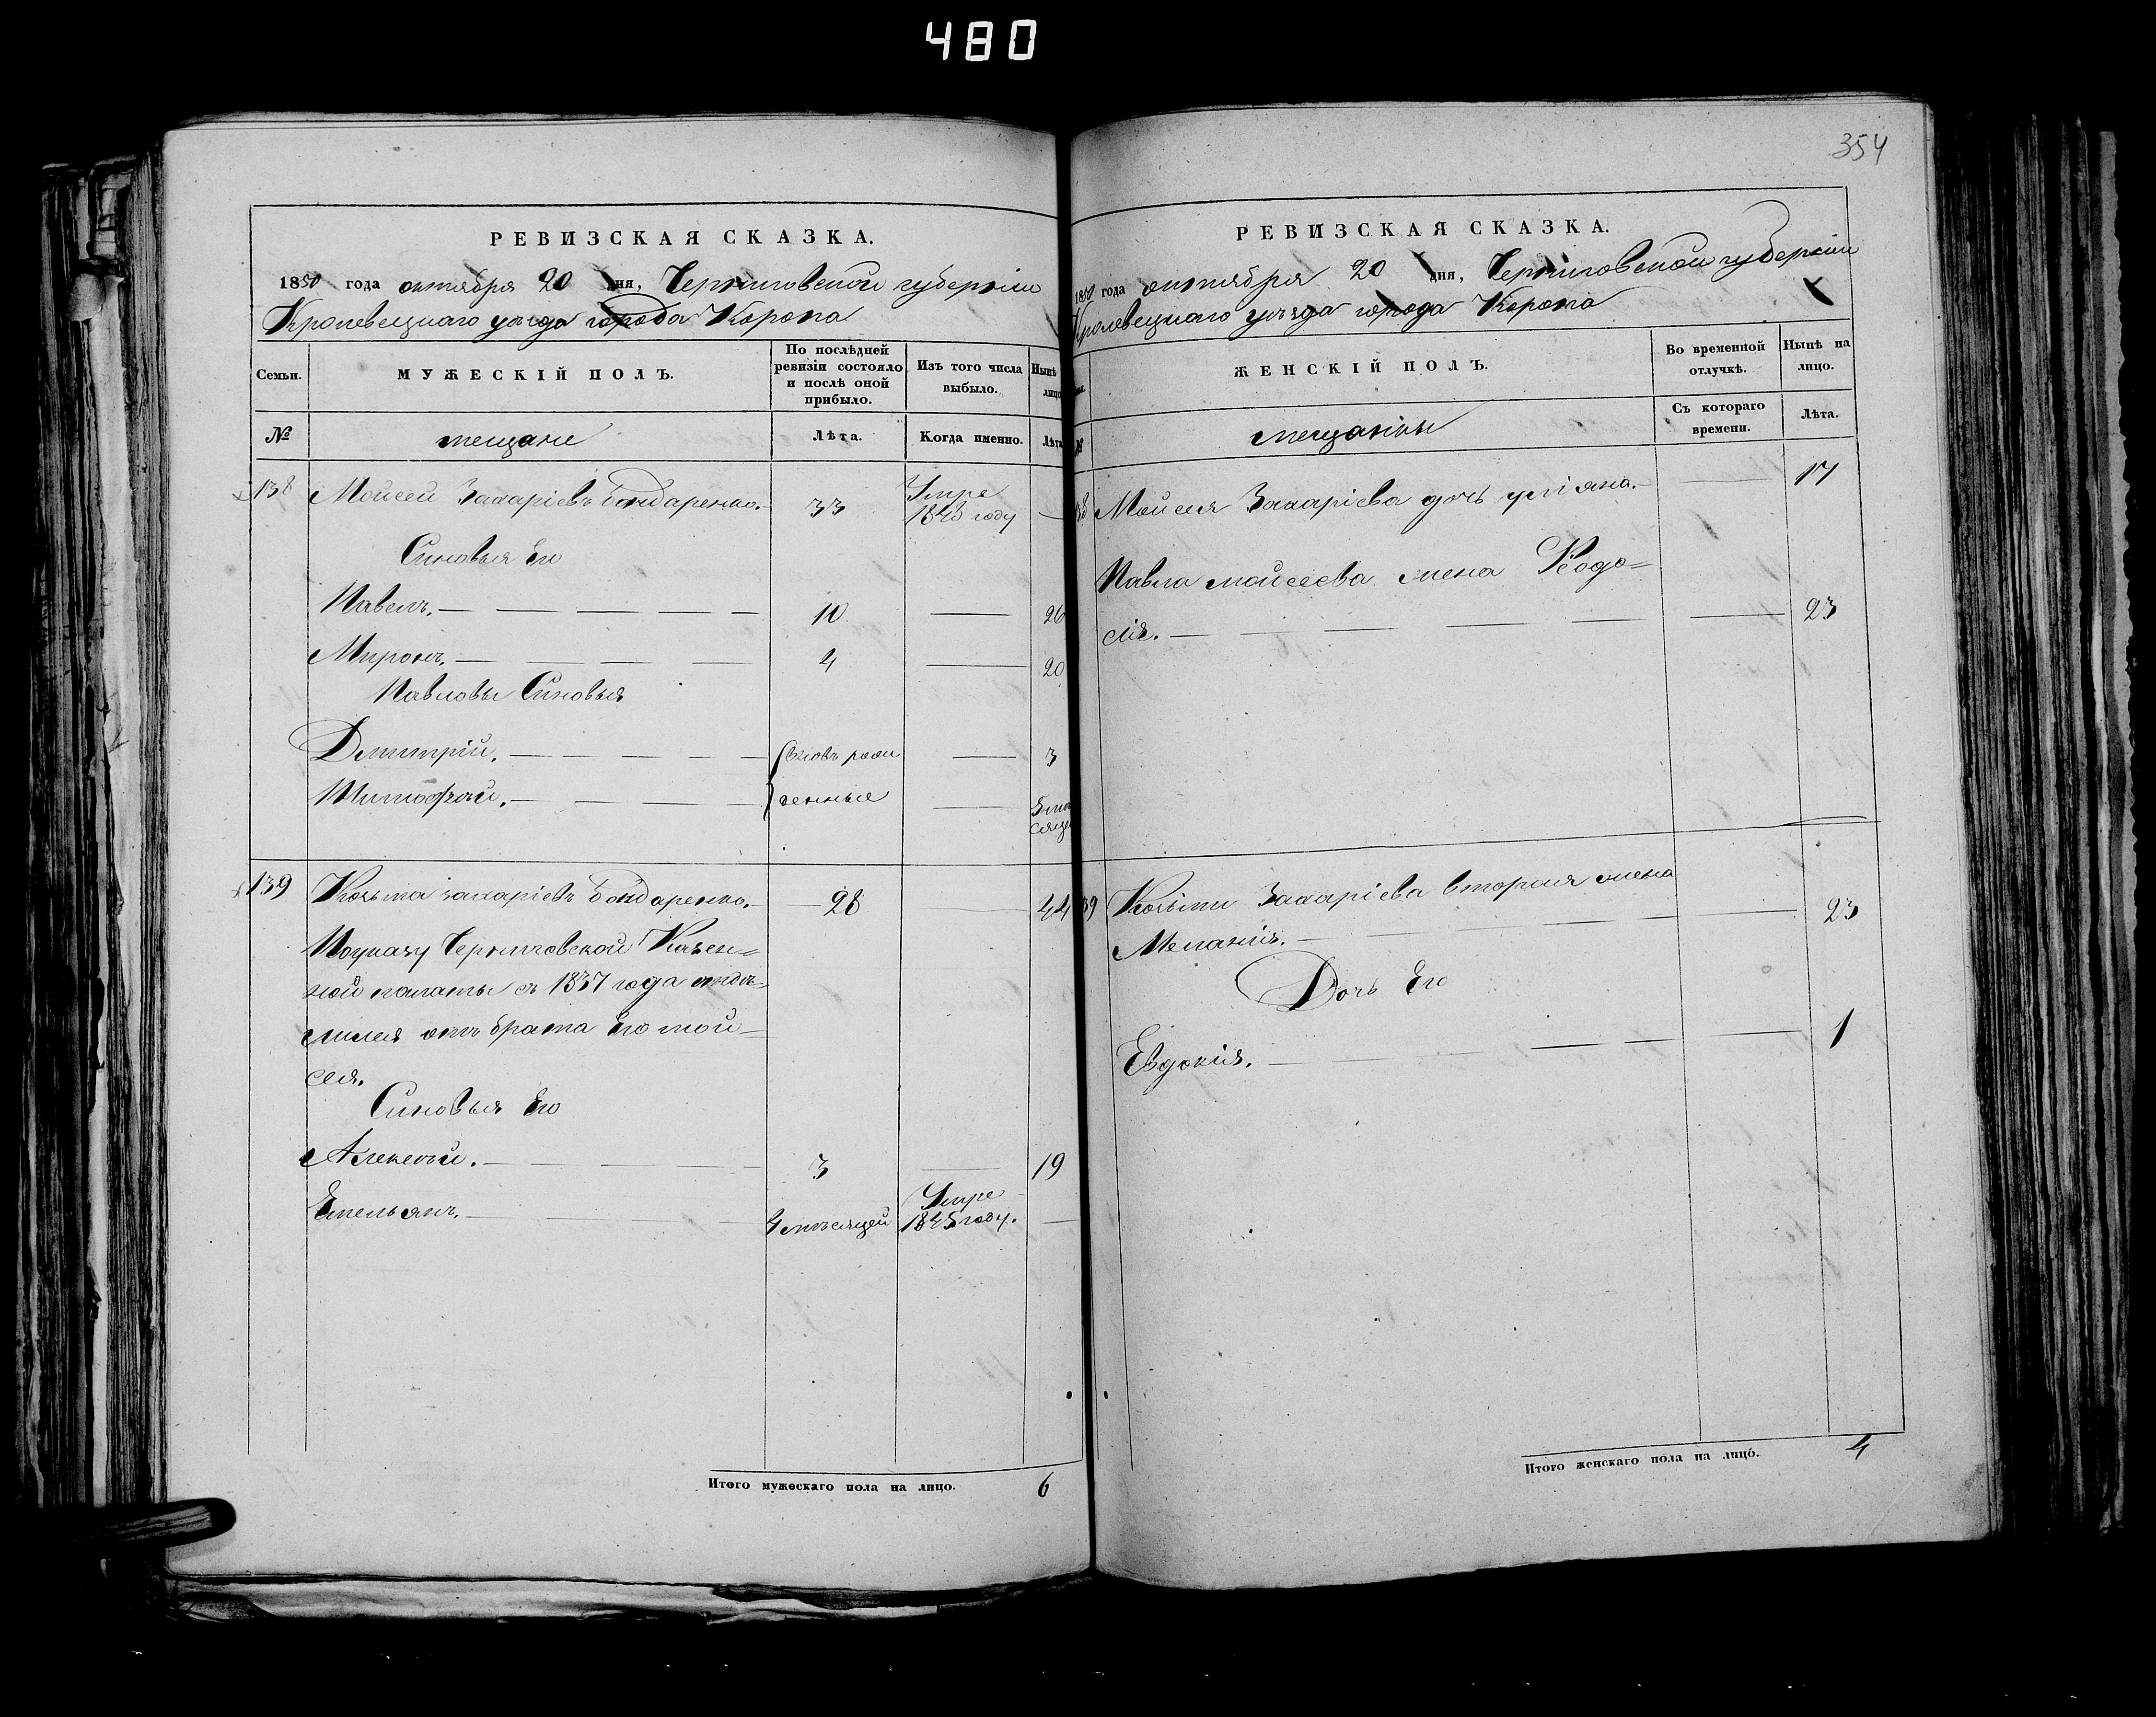 480
354
РЕВИЗСКАЯ СКАЗКА.
1850 года октября 20 дня, Черниговской губерніи
Кролевецкаго уѣзда города Коропа
Семьи.
МУЖЕСКІЙ ПОЛЪ.
По послѣдней ревизіи состояло и послѣ оной прибыло.
Изъ того числа выбыло.
Нынѣ
лицо
№
мещане
Лѣта.
Когда именно.
Лѣта
138 Мойсей Захаріевъ Бондаренко. 33 Умре
1843 году —
Синовья Его
Павелъ. — 10. — 26
Миронъ. — 4 — 20
Павловы Синовья
Дмитрій. — вновь рож — 3
Тимофей. — денные —
139 Козьма захаріевъ Бондаренко. 28 — 44
Поуказу Черниговской Казен=
ной палаты съ 1837 года отдѣ=
лился отъ брата Его мой=
сея.
Синовья Его
Алексѣй. — 3 — 19
Емельянъ. — 4 мѣсяцей Умре
1845 году. —
Итого мужескаго пола на лицо. 6
РЕВИЗСКАЯ СКАЗКА.
1850 года октября 20 дня, Черниговской губерніи
Кролевецкаго уѣзда города Коропа
ЖЕНСКІЙ ПОЛЪ.
Во временной отлучкѣ.
Нынѣ на лицо.
№
мещанки
Съ котораго времени.
Лѣта.
138 Мойсея Захаріева дочь улияна. — 17
Павла мойсеева жена Феодо=
сія. — 23
139 Козьми Захаріева вторая жена
Меланія. — 23
Дочь Его
Евдокія. — 1
Итого женскаго пола на лицо. 4